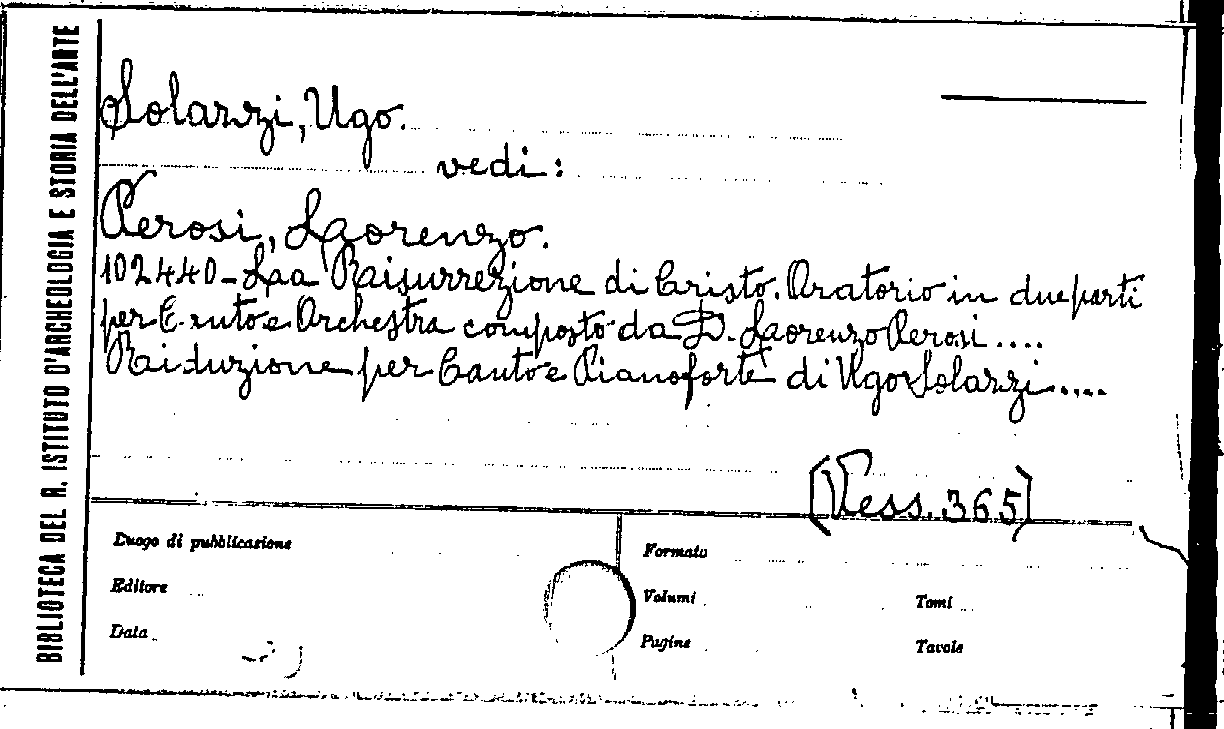 BIBLIOTECA DEL R. ISTITUTO D'ARCHEOLOGIA E STORIA DELL'ARTE
Solazzi, Ugo.
vedi:
Perosi, Lorenzo.
102440-La Risurrezione di Cristo. Oratorio in due parti
per Canto e Orchestra composto da D. Lorenzo Perosi....
Riduzione per Canto e Pianoforte di Ugo Solazzi....
[Vess. 365]
Luogo di pubblicazione
Editore
Data
Formato
Volumi
Tomi
Pagine
Tavole